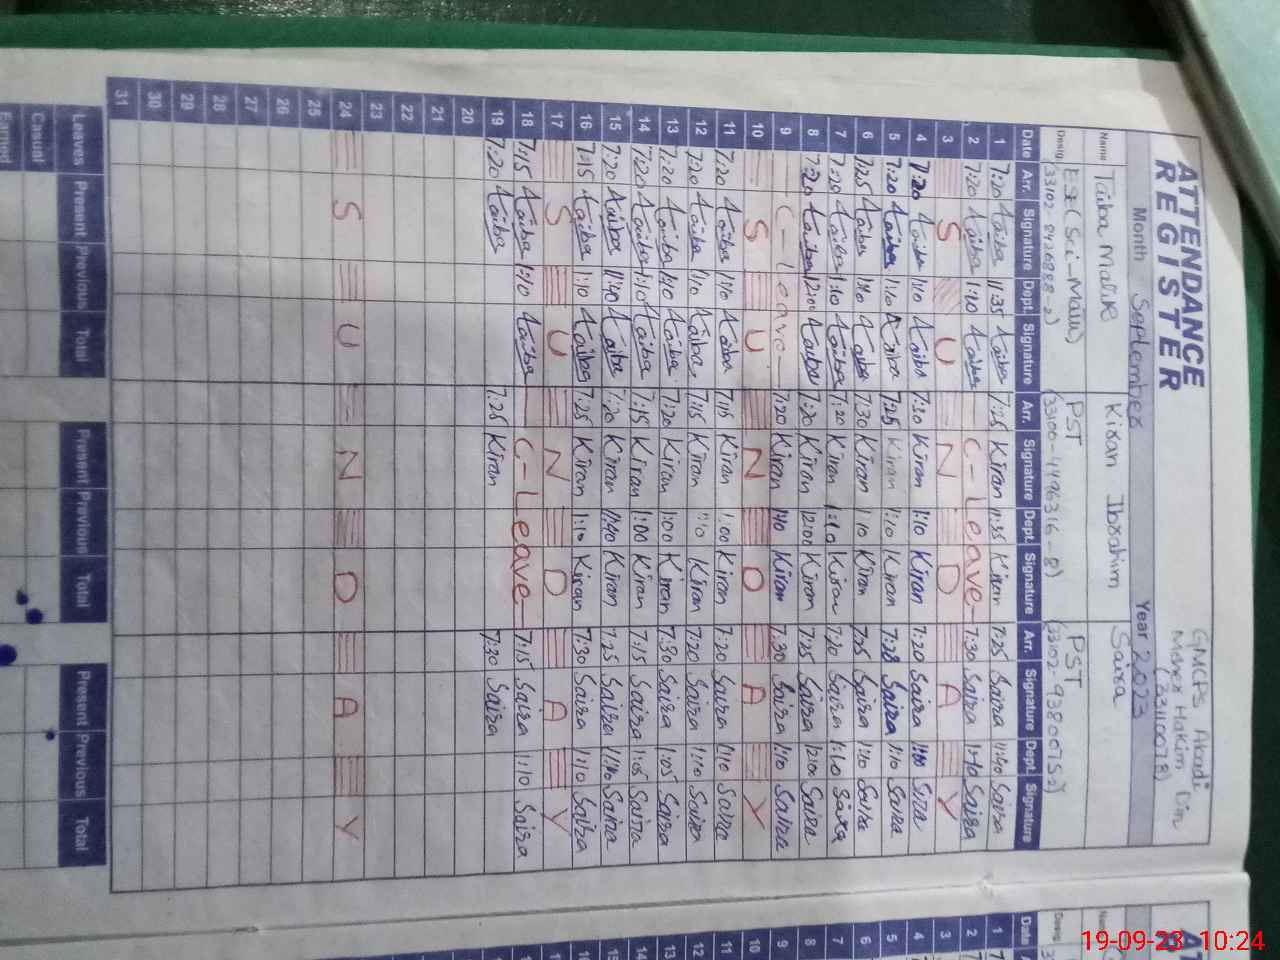 ATTENDANCE REGISTER
GMCPS Abadi
Maher Hakim Din
(33110078)
Month September Year 2023
Name Taiba Malik Kiran Ibrahim Saira
Desig. ESE (Sci-Math) PST PST
Date Arr. Signature Dept. Signature Arr. Signature Dept. Signature Arr. Signature Dept Signature
1 7:20 Taiba 11:35 Taiba 7:25 Kiran 11:35 Kiran 7:25 Saira 11:40 Saira
2 7:20 Taiba 1:10 Taiba C-Leave 7:30 Saira 1:10 Saira
3 S U N D A Y
4 7:20 Taiba 1:10 Taiba 7:30 Kiran 1:10 Kiran 7:20 Saira Saira
5 7:20 Taiba 1:10 Taiba 7:25 Kiran 1:10 Kiran 7:28 Saira 1:10 Saira
6 7:25 Taiba 1:10 Taiba 7:30 Kiran 1:10 Kiran 7:25 Saira 1:10 Saira
7 7:20 Taiba 1:10 Taiba 7:20 Kiran 1:10 Kiran 7:20 Saira 1:10 Saira
8 7:20 Taiba 12:01 Taiba 7:20 Kiran 12:00 Kiran 7:25 Saira 12:10 Saira
9 C-Leave 7:20 Kiran 1:10 Kiran 7:30 Saira 1:10 Saira
10 S U N D A Y
11 7:20 Taiba 1:10 Taiba 7:15 Kiran 1:00 Kiran 7:20 Saira 1:10 Saira
12 7:20 Taiba 1:10 Taiba 7:15 Kiran 1:10 Kiran 7:20 Saira 1:10 Saira
13 7:20 Taiba 1:10 Taiba 7:20 Kiran 1:00 Kiran 7:30 Saira 1:05 Saira
14 7:20 Taiba 1:10 Taiba 7:15 Kiran 1:00 Kiran 7:15 Saira 1:05 Saira
15 7:20 Taiba 11:40 Taiba 7:20 Kiran 11:40 Kiran 7:25 Saira Saira
16 7:15 Taiba 1:10 Taiba 7:25 Kiran 1:10 Kiran 7:30 Saira 1:10 Saira
17 S U N D A Y
18 7:15 Taiba 1:10 Taiba C-Leave 7:15 Saira 1:10 Saira
19 7:20 Taiba 7:25 Kiran 7:30 Saira
20
21
22
23
24 S U N D A Y
25
26
27
28
29
30
31
Leaves Present Previous Total Present Previous Total Present Previous Total
Casual
Earned
Date
Desig.
1
2
3
4
5
6
7
8
9
10
11
12
13
14
19-09-23 10:24